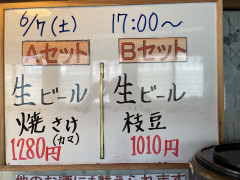 6/7(土) 17:00〜
Aセット
生ビール
焼さけ
(カマ)
1280円
Bセット
生ビール
枝豆
1010円